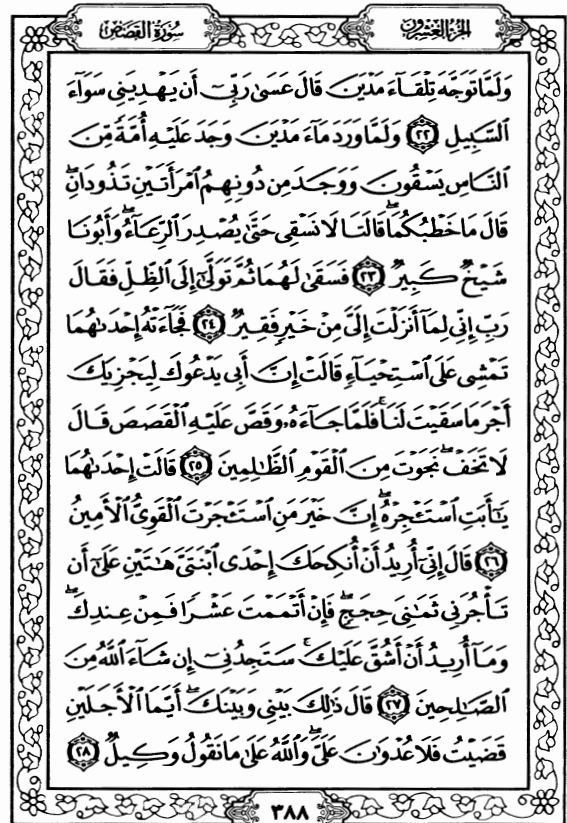 سُورَةُ القَصَصِ
الجُزْءُ العِشْرُونَ
وَلَمَّا تَوَجَّهَ تِلْقَآءَ مَدْيَنَ قَالَ عَسَىٰ رَبِّىٓ أَن يَهْدِيَنِى سَوَآءَ
ٱلسَّبِيلِ ٢٢ وَلَمَّا وَرَدَ مَآءَ مَدْيَنَ وَجَدَ عَلَيْهِ أُمَّةً مِّنَ
ٱلنَّاسِ يَسْقُونَ وَوَجَدَ مِن دُونِهِمُ ٱمْرَأَتَيْنِ تَذُودَانِۖ
قَالَ مَا خَطْبُكُمَاۖ قَالَتَا لَا نَسْقِى حَتَّىٰ يُصْدِرَ ٱلرِّعَآءُۖ وَأَبُونَا
شَيْخٌ كَبِيرٌ ٢٣ فَسَقَىٰ لَهُمَا ثُمَّ تَوَلَّىٰٓ إِلَى ٱلظِّلِّ فَقَالَ
رَبِّ إِنِّى لِمَآ أَنزَلْتَ إِلَىَّ مِنْ خَيْرٍ فَقِيرٌ ٢٤ فَجَآءَتْهُ إِحْدَىٰهُمَا
تَمْشِى عَلَى ٱسْتِحْيَآءٍ قَالَتْ إِنَّ أَبِى يَدْعُوكَ لِيَجْزِيَكَ
أَجْرَ مَا سَقَيْتَ لَنَاۚ فَلَمَّا جَآءَهُۥ وَقَصَّ عَلَيْهِ ٱلْقَصَصَ قَالَ
لَا تَخَفْۖ نَجَوْتَ مِنَ ٱلْقَوْمِ ٱلظَّٰلِمِينَ ٢٥ قَالَتْ إِحْدَىٰهُمَا
يَٰٓأَبَتِ ٱسْتَـْٔجِرْهُۖ إِنَّ خَيْرَ مَنِ ٱسْتَـْٔجَرْتَ ٱلْقَوِىُّ ٱلْأَمِينُ
٢٦ قَالَ إِنِّىٓ أُرِيدُ أَنْ أُنكِحَكَ إِحْدَى ٱبْنَتَىَّ هَٰتَيْنِ عَلَىٰٓ أَن
تَأْجُرَنِى ثَمَٰنِىَ حِجَجٍۖ فَإِنْ أَتْمَمْتَ عَشْرًا فَمِنْ عِندِكَۖ
وَمَآ أُرِيدُ أَنْ أَشُقَّ عَلَيْكَۚ سَتَجِدُنِىٓ إِن شَآءَ ٱللَّهُ مِنَ
ٱلصَّٰلِحِينَ ٢٧ قَالَ ذَٰلِكَ بَيْنِى وَبَيْنَكَۖ أَيَّمَا ٱلْأَجَلَيْنِ
قَضَيْتُ فَلَا عُدْوَٰنَ عَلَىَّۖ وَٱللَّهُ عَلَىٰ مَا نَقُولُ وَكِيلٌ ٢٨
٣٨٨